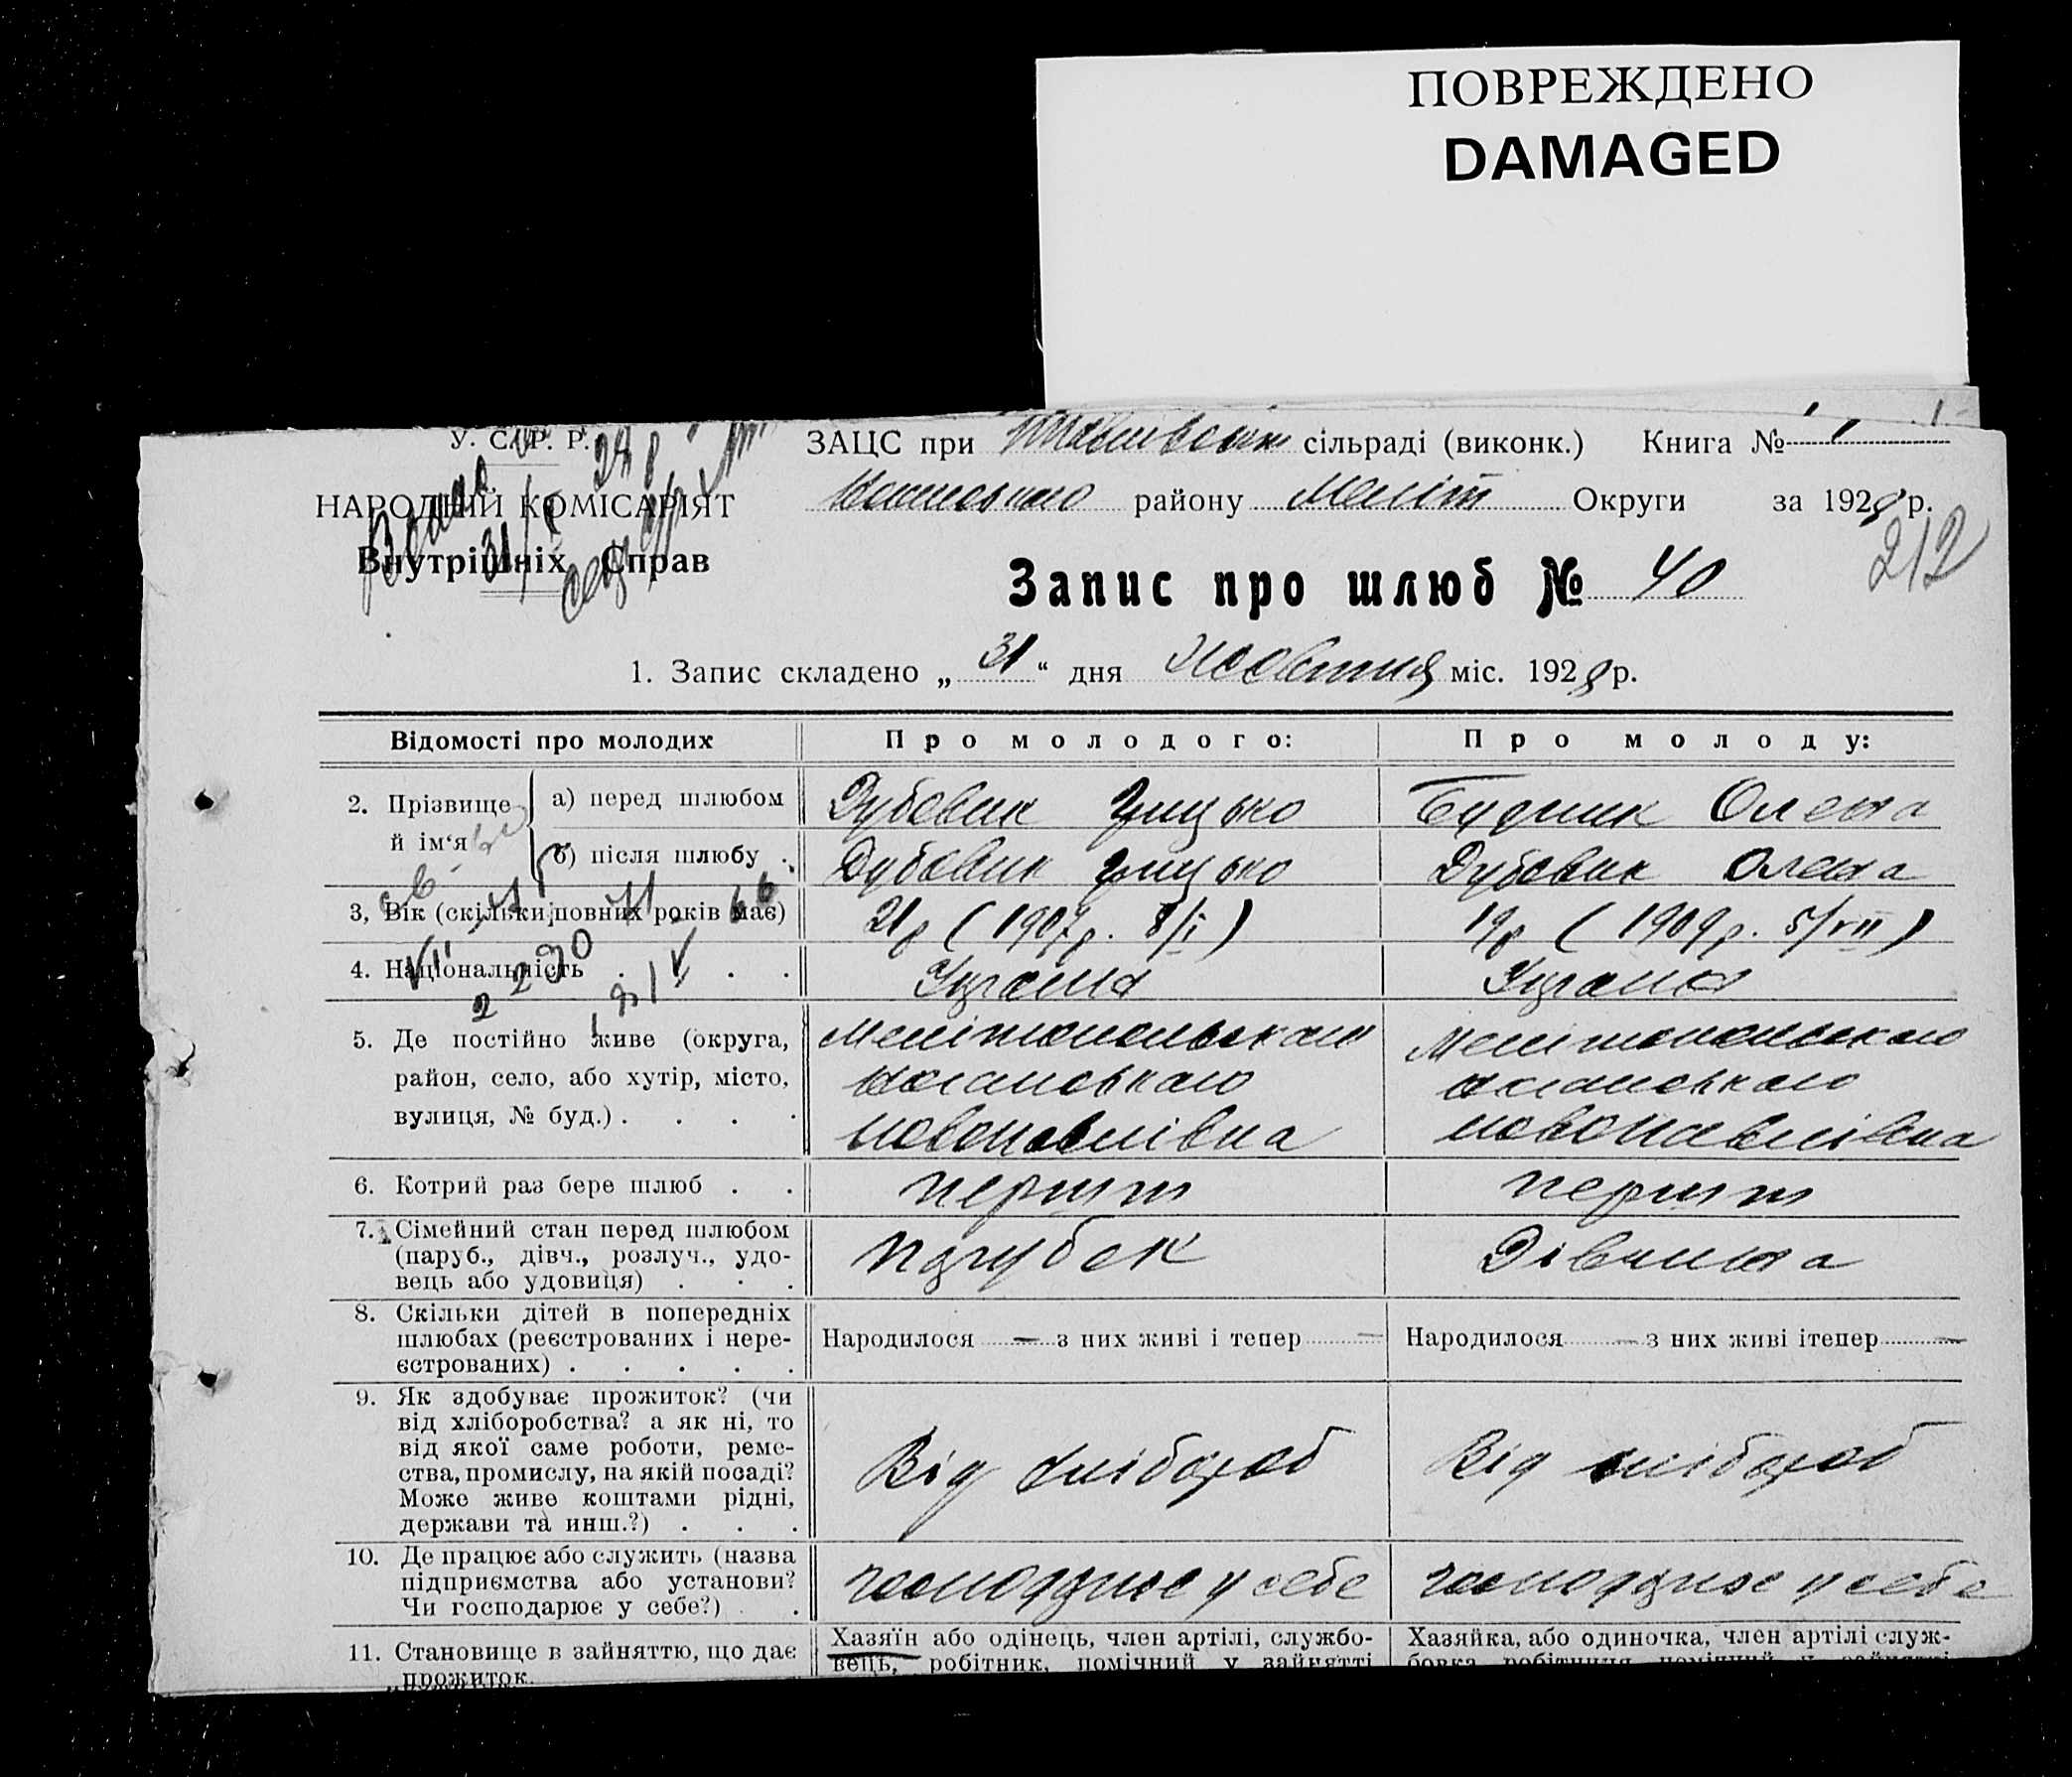 ПОВРЕЖДЕНО
DAMAGED
У. С. Р. Р.
НАРОДНІЙ КОМІСАРІЯТ
Внутрішніх Справ
ЗАЦС при сільраді (виконк.) Книга № 1
району Меліт Округи за 1928 р.
212
Запис про шлюб № 40
1. Запис складено „ 31 “ дня Жовтня міс. 1928 р.
Відомості про молодих
Про молодого:
Про молоду:
2. Прізвище й ім‘я
а) перед шлюбом
Дубовик Грицько
Будник Олена
б) після шлюбу
Дубовик Грицько
Дубовик Олена
3, Вік (скільки повних років має)
21 р (1907 р. 8/I)
19 р (1909 р. 5/VII)
4. Національність . . . .
Україн
Україн
5. Де постійно живе (округа,
район, село, або хутір, місто,
вулиця, № буд.) . . . .
Мелітопольского
Новопавлівка
Мелітопольского
Новопавлівка
6. Котрий раз бере шлюб . .
перший
перший
7. Сімейний стан перед шлюбом
(паруб., дівч., розлуч., удо-
вець або удовиця) . . .
парубок
Дівчина
8. Скільки дітей в попередніх
шлюбах (реєстрованих і нере-
єстрованих) . . . . .
Народилося — з них живі і тепер —
Народилося — з них живі ітепер —
9. Як здобуває прожиток? (чи
від хліборобства? а як ні, то
від якої саме роботи, реме-
ства, промислу, на якій посаді?
Може живе коштами рідні,
держави та инш.?) . . .
Від хлібороб
Від хлібороб
10. Де працює або служить (назва
підприємства або установи?
Чи господарює у себе?) .
у себе
у себе
11. Становище в зайняттю, що дає
прожиток.
Хазяїн або одінець, член артілі, службо-
вець, робітник, помічний у зайнятті
Хазяйка, або одиночка, член артілі служ-
бовка робітниця помічний у зайнятті